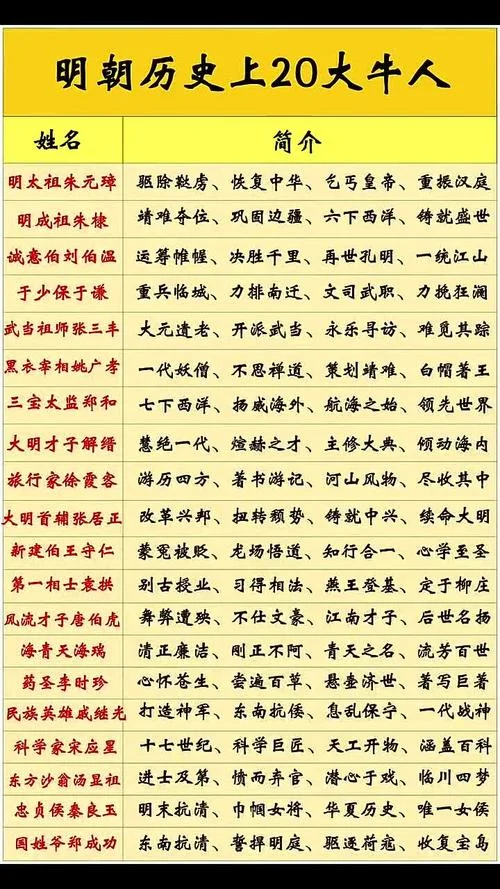 明朝历史上20大牛人
姓名 简介
明太祖朱元璋 驱除鞑虏、恢复中华、乞丐皇帝、重振汉庭
明成祖朱棣 靖难夺位、巩固边疆、六下西洋、铸就盛世
诚意伯刘伯温 运筹帷幄、决胜千里、再世孔明、一统江山
于少保于谦 重兵临城、力排南迁、文司武职、力挽狂澜
武当祖师张三丰 大元遗老、开派武当、永乐寻访、难觅其踪
黑衣宰相姚广孝 一代妖僧、不思禅道、策划靖难、白帽著王
三宝太监郑和 七下西洋、扬威海外、航海之始、领先世界
大明才子解缙 慧绝一代、煊赫之才、主修大典、倾动海内
旅行家徐霞客 游历四方、著书游记、河山风物、尽收其中
大明首辅张居正 改革兴邦、扭转颓势、铸就中兴、续命大明
新建伯王守仁 蒙冤被贬、龙场悟道、知行合一、心学至圣
第一相士袁拱 别古授业、习得相法、燕王登基、定于柳庄
风流才子唐伯虎 舞弊遭殃、不仕文豪、江南才子、后世名扬
海青天海瑞 清正廉洁、刚正不阿、青天之名、流芳百世
药圣李时珍 心怀苍生、尝遍百草、悬壶济世、著写巨著
民族英雄戚继光 打造神军、东南抗倭、息乱保宁、一代战神
科学家宋应星 十七世纪、科学巨匠、天工开物、涵盖百科
东方沙翁汤显祖 进士及第、愤而弃官、潜心于戏、临川四梦
忠贞侯秦良玉 明末抗清、巾帼女将、华夏历史、唯一女侯
国姓爷郑成功 东南抗清、誓捍明庭、驱逐荷寇、收复宝岛